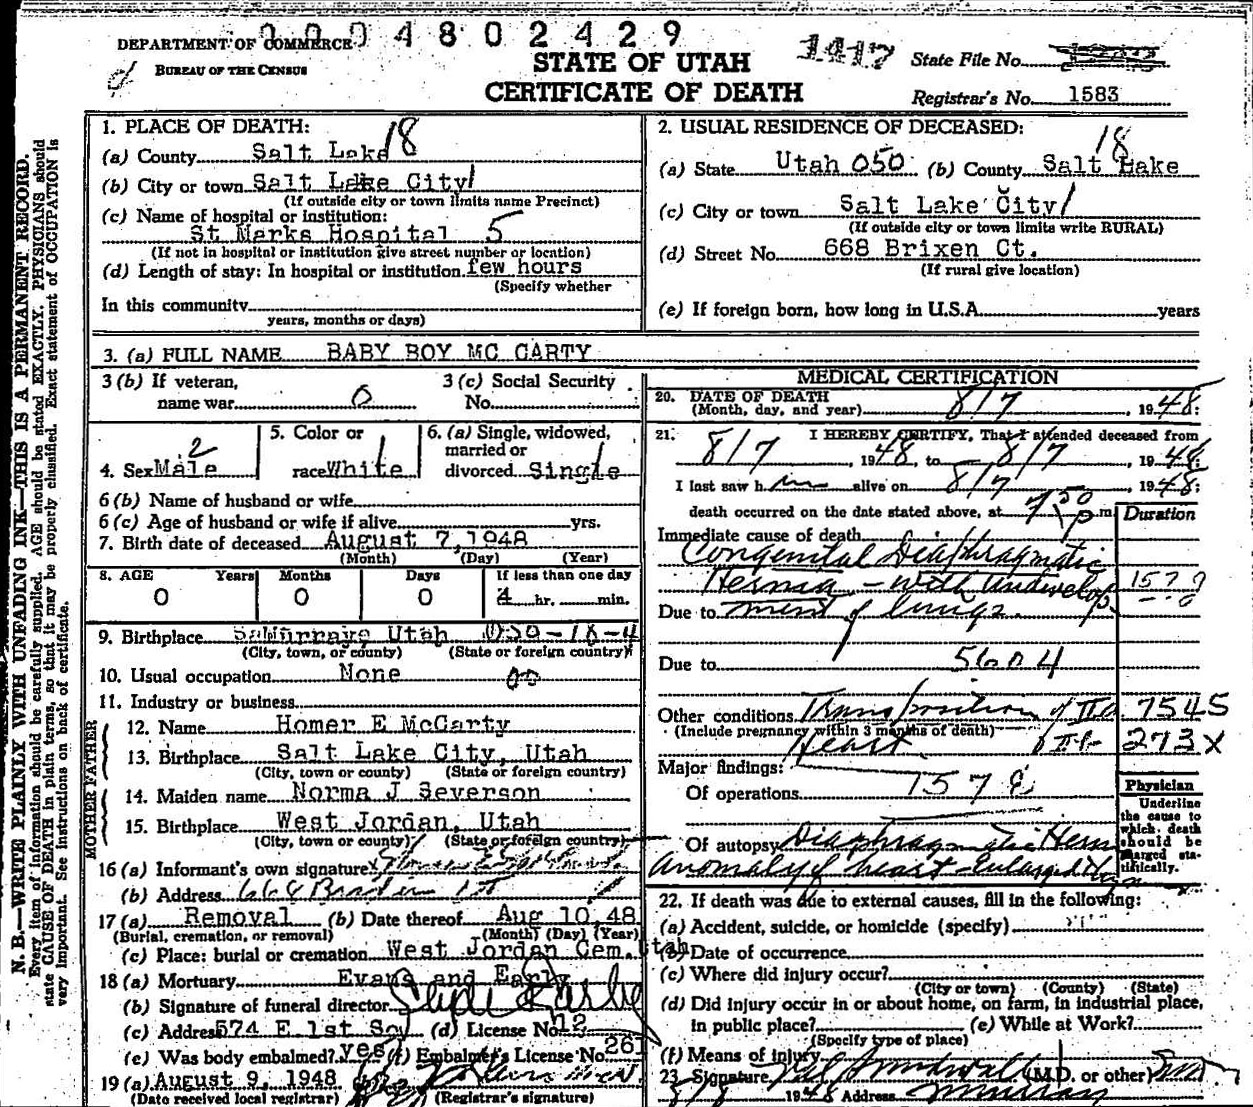 0004802429
DEPARTMENT OF COMMERCE
BUREAU OF THE CENSUS
STATE OF UTAH
CERTIFICATE OF DEATH
1417
State File No.
Registrar's No. 1583
N. B.—WRITE PLAINLY WITH UNFADING INK—THIS IS A PERMANENT RECORD.
Every item of information should be carefully supplied. AGE should be stated EXACTLY. PHYSICIANS should
state CAUSE OF DEATH in plain terms, so that it may be properly classified. Exact statement of OCCUPATION is
very important. See instructions on back of certificate.
1. PLACE OF DEATH:
(a) County Salt Lake 18
(b) City or town Salt Lake City 1
(If outside city or town limits name Precinct)
(c) Name of hospital or institution:
St Marks Hospital 5
(If not in hospital or institution give street number or location)
(d) Length of stay: In hospital or institution few hours
(Specify whether
In this community
years, months or days)
2. USUAL RESIDENCE OF DECEASED:
18
(a) State Utah 050 (b) County Salt Lake
(c) City or town Salt Lake City 1
(If outside city or town limits write RURAL)
(d) Street No. 668 Brixen Ct.
(If rural give location)
(e) If foreign born, how long in U.S.A. years
3. (a) FULL NAME BABY BOY MC CARTY
3 (b) If veteran,
name war 0
3 (c) Social Security
No.
4. Sex Male 2
5. Color or
race White 1
6. (a) Single, widowed,
married or
divorced Single
6 (b) Name of husband or wife
6 (c) Age of husband or wife if alive yrs.
7. Birth date of deceased August 7, 1948
(Month) (Day) (Year)
8. AGE Years Months Days If less than one day
0 0 0 4 hr. min.
9. Birthplace Murray, Utah 050-18-4
(City, town, or county) (State or foreign country)
10. Usual occupation None 00
11. Industry or business
FATHER
12. Name Homer E McCarty
13. Birthplace Salt Lake City, Utah
(City, town or county) (State or foreign country)
MOTHER
14. Maiden name Norma J Severson
15. Birthplace West Jordan, Utah
(City, town or county) (State or foreign country)
16 (a) Informant's own signature
(b) Address 668
17 (a) Removal (b) Date thereof Aug 10, 48
(Burial, cremation, or removal) (Month) (Day) (Year)
(c) Place: burial or cremation West Jordan Cem. Utah
18 (a) Mortuary Evans and Early
(b) Signature of funeral director
(c) Address 574 E 1st So (d) License No. 12
(e) Was body embalmed? yes (f) Embalmer's License No. 261
19 (a) August 9, 1948
(Date received local registrar) (Registrar's signature)
MEDICAL CERTIFICATION
20. DATE OF DEATH
(Month, day, and year) 8/7, 1948
21. I HEREBY CERTIFY, That I attended deceased from
8/7, 1948, to 8/7, 1948
I last saw him alive on 8/7, 1948;
death occurred on the date stated above, at 7:50 p m
Duration
Immediate cause of death
Congenital Diaphragmatic
Hernia - with undevelop
Due to ment of lungs.
Due to 5604
Other conditions Transposition of 7545
(Include pregnancy within 3 months of death)
Heart 273X
Major findings:
Of operations 157
Of autopsy Diaphragmatic Hernia
anomaly of heart - Enlarged
Physician
Underline
the cause to
which death
should be
charged sta-
tistically.
22. If death was due to external causes, fill in the following:
(a) Accident, suicide, or homicide (specify)
(b) Date of occurrence
(c) Where did injury occur?
(City or town) (County) (State)
(d) Did injury occur in or about home, on farm, in industrial place,
in public place? (e) While at Work?
(Specify type of place)
(f) Means of injury
23. Signature (M.D. or other)
8/8 1948 Address Murray